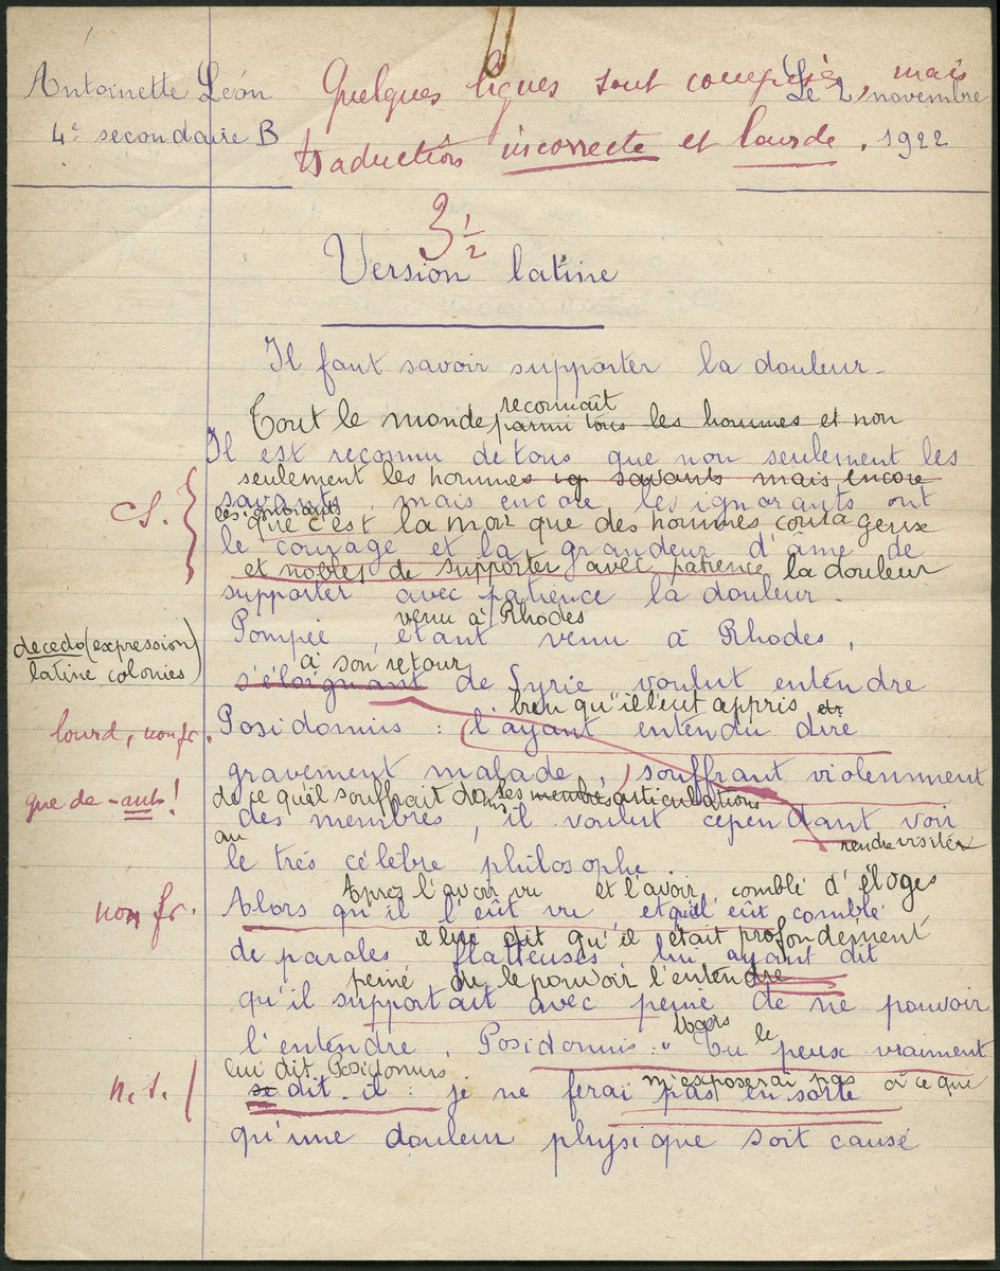 Antoinette Léon
4e secondaire B
Le 2 novembre
1922
Quelques lignes sont comprises, mais
traduction incorrecte et lourde.
3 1/2
Version latine
Il faut savoir supporter la douleur.
Tout le monde reconnaît parmi tous les hommes et non
Il est reconnu de tous que non seulement les
seulement les hommes savants mais encore
savants, mais encore les ignorants ont
les ignorants
que c'est la mort que des hommes courageux
CS.
le courage et la grandeur d'âme de
et nobles de supporter avec patience la douleur
supporter avec patience la douleur.
venu à Rhodes
Pompée, étant venu à Rhodes,
decedo (expression
latine colonies)
à son retour
s'éloignant de Syrie voulut entendre
bien qu'il eut appris
Posidonius : (l'ayant entendu dire
lourd, non fr.
gravement malade,) souffrant violemment
que de -ant !
de ce qu'il souffrait dans les membres articulations
des membres, il voulut cependant voir
au
rendre visiter
le très célèbre philosophe.
Après l'avoir vu et l'avoir comblé d'éloges
non fr.
Alors qu'il l'eût vu, et qu'il eût comblé
il lui dit qu'il était profondément
de paroles flatteuses, lui ayant dit
peiné de ne pouvoir l'entendre
qu'il supportait avec peine de ne pouvoir
l'entendre, Posidonius : " Tu le peux vraiment
lui dit Posidonius
n.s.
se dit-il : je ne ferai pas en sorte
m'exposerai pas à ce qui
qu'une douleur physique soit causé